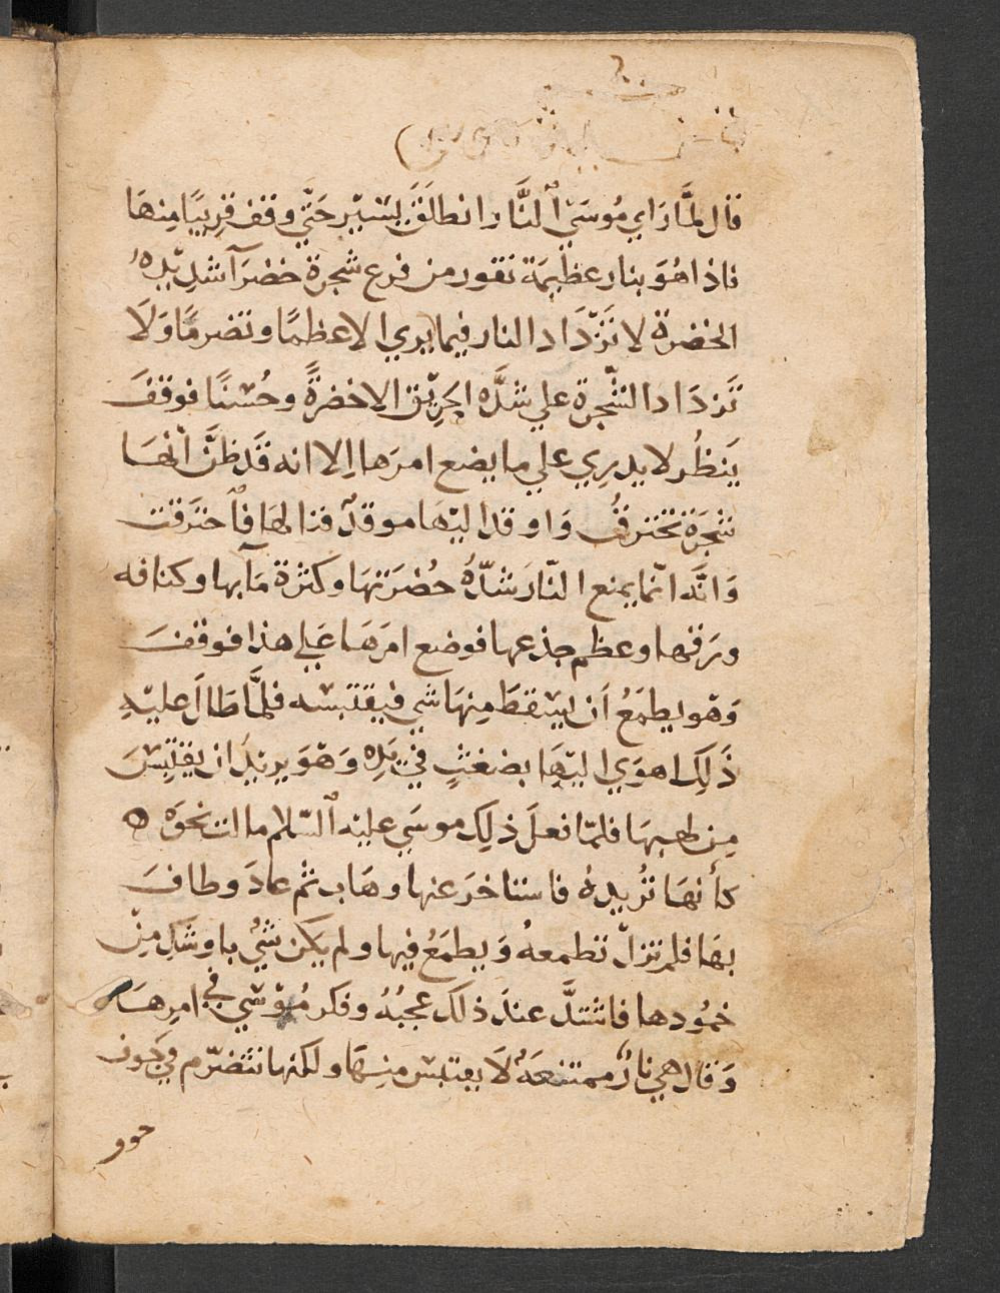 قال لمَّا رَاي مُوسَيٰ ٱلنَّار انطلَقَ يَسَيْر حَتّي وقف قرِيبًا مِنهَا
فاذا هُوَ بنار عظيمَة تفور من فرع شجرة خضرَآ شدِيدِهْ
الخضرة لا تَزْدَاد النار فيما يري الا عظمًا وتضرمًا وَلَا
تَزدَاد الشّجرة علي شدَّه الحَرِيّق الا خضرةً وحُسْنًا فوقفَ
يَنظُر لا يدرِي علي ما يضع امرَها اِلا انه قَد ظنَّ انْهَا
شجَرَة تحترقُ وَاوقد اليْهَا موقدٌ فنالهَا فٱحترَقت
وَانَّه انّما يمنع النّارَ شدّةُ خُضرَتهَا وكثرة مَآيها وكثافه
ورَقها وعظم جذعها فوضع امَرهَا عَلي هذا فوقفَ
وَهْو يطمَعُ اَن يسْقطَ مِنهَا شي فيقتبسْه فلمَّا طَالَ عليْهِ
ذَلِكَ اهوَي اليْهَا بضغثٍ في يَدِه وَهْوَ يريْدُ ان يقتَبِسَ
مِن لهبهَا فلمّا فعلَ ذلِكَ موسَي عليْه ٱلسّلام مالت نحوَه ۞
كأنهَا تُريدهُ فاستاخرَ عنها وهَاب ثم عادَ وطافَ
بهَا فلم تزلْ تطمعهُ وَيطمَعُ فيها ولم يَكن شيْ باوشكِ مِنْ
خمُودها فاشتدَّ عندَ ذلكَ عجبُهُ وفكر مُوْسَي في امرِهَا
وَقال هي نارٌ ممتنعَةٌ لَا يقتبسْ منهَا ولكنها تتضرّم في جَوف